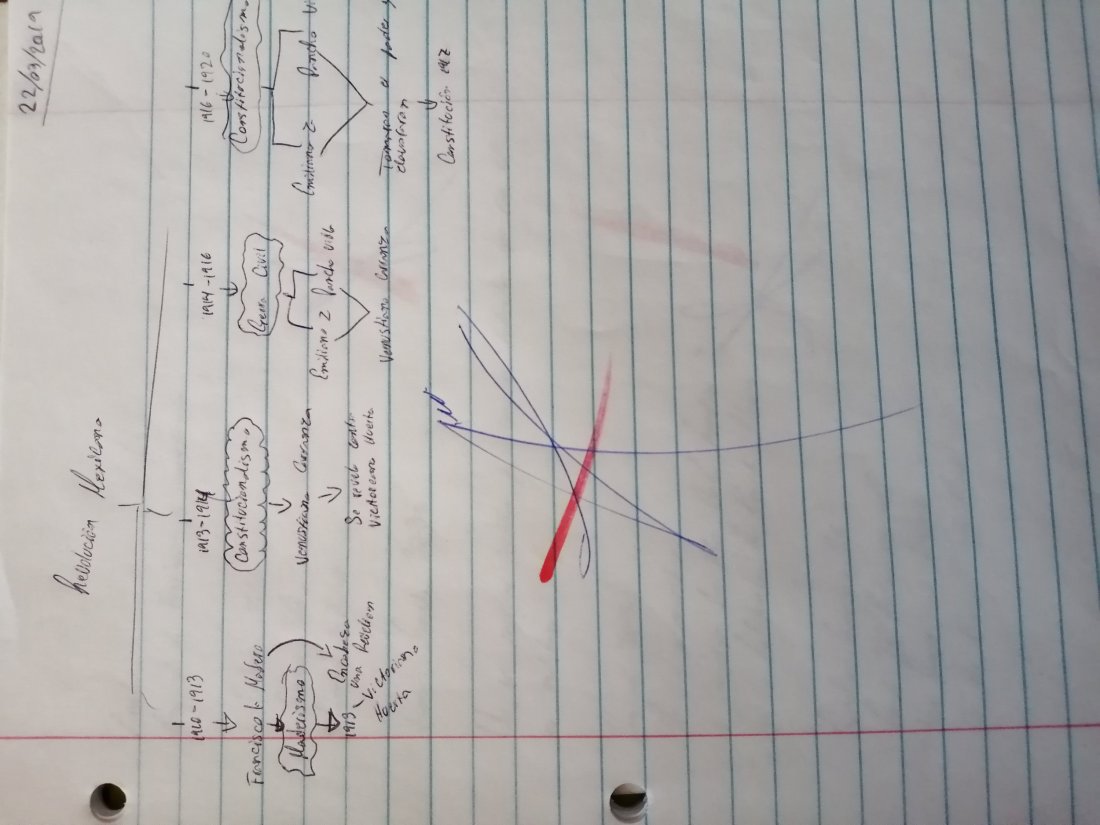 22/03/2019
Revolución Mexicana
1910-1913
Francisco I. Madero
Maderismo
1913
Encabeza
una Rebelion
Victoriano
1913-1914
Constitucionalismo
Venustiano Carranza
Se revela contra
Victoreano Huerta
1914-1916
Gerra Civil
Emiliano Z Pancho Villa
Venustiano Carranza
1916-1920
Constitucionalismo
Emiliano Z Pancho Vi
Tomaron el poder y
Constitución 1917